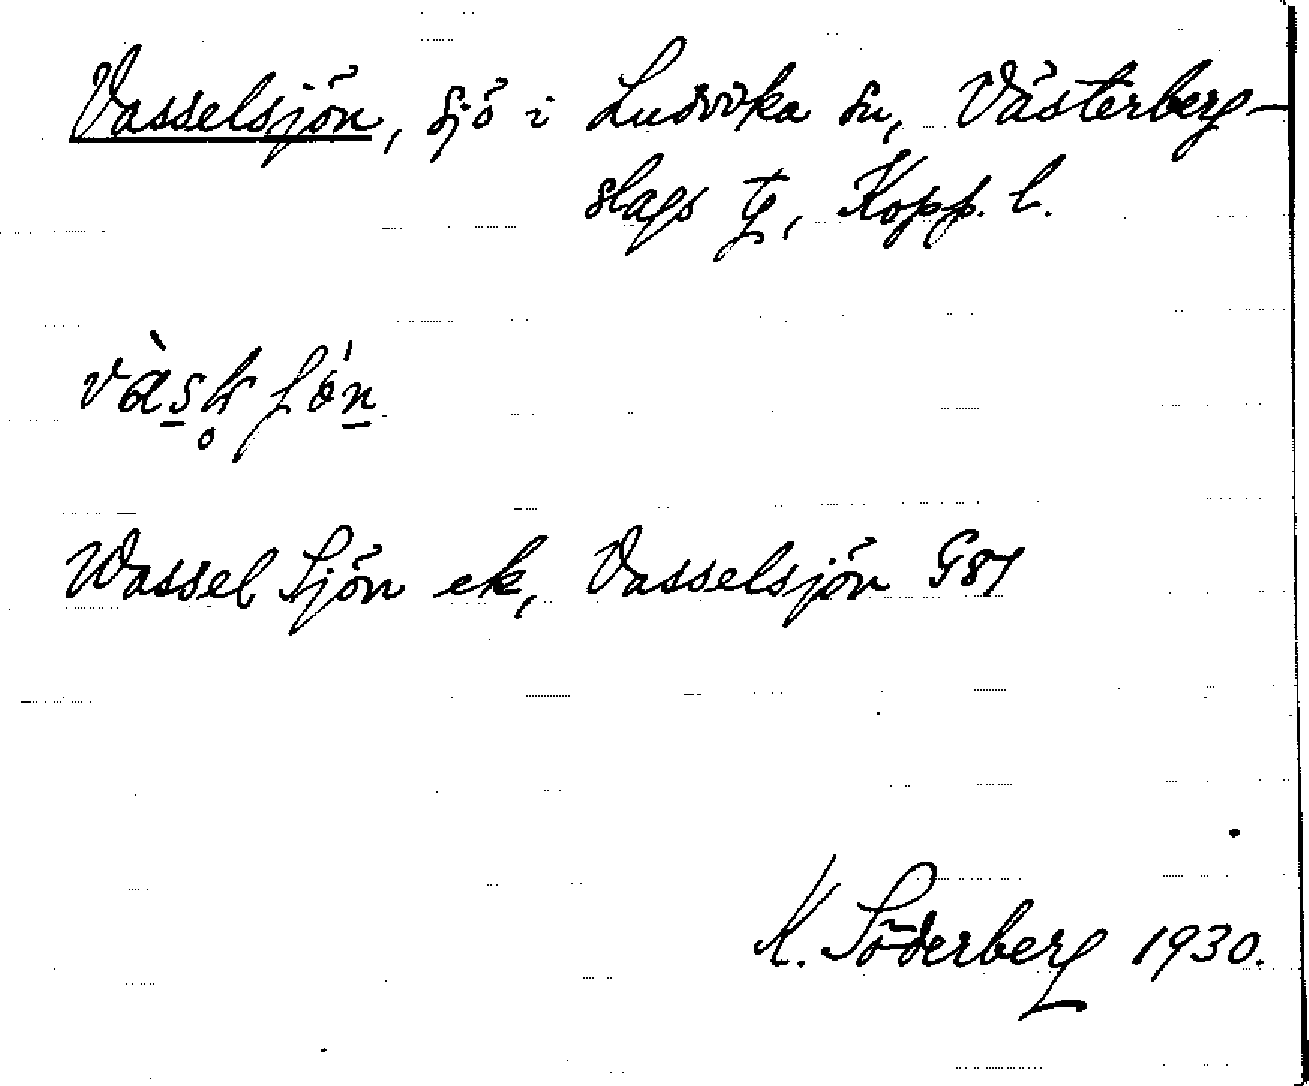 Vasselsjön, sjö i Ludvika sn, Västerberg-
slags tg, Kopp. l.
Wassel Sjön ek, Vasselsjön G87
K. Söderberg 1930.